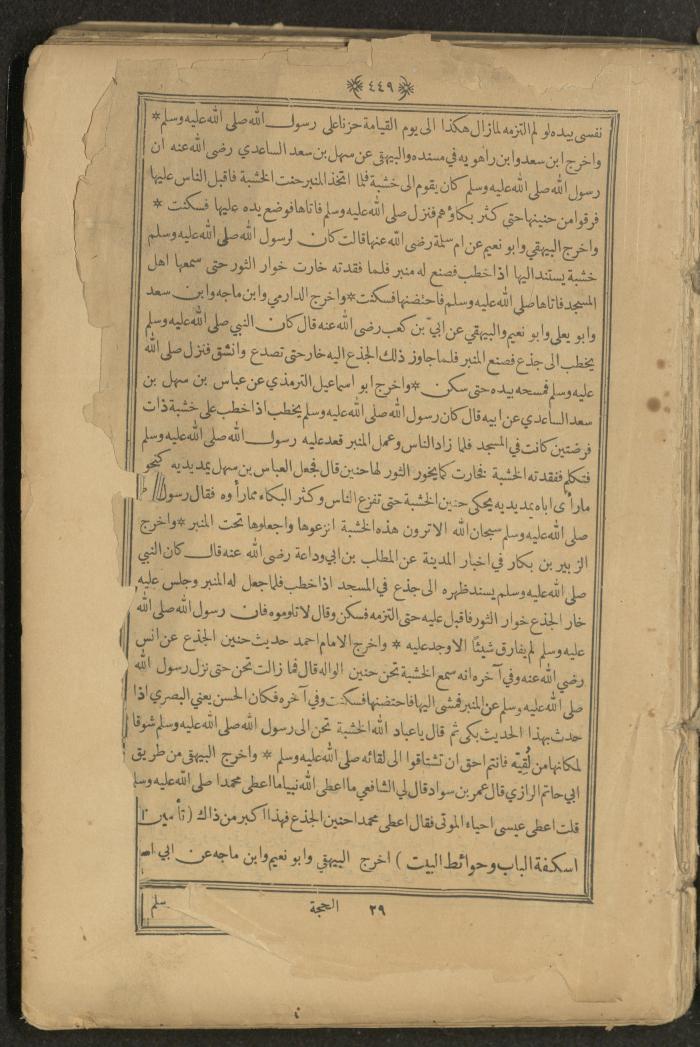 ٤٤٩
نفسى بيده لو لم التزمه لمازال هكذا الى يوم القيامة حزنا على رسول الله صلى الله عليه وسلم *
واخرج ابن سعد وابن راهويه في مسنده والبيهقى عن سهل بن سعد الساعدي رضى الله عنه ان
رسول الله صلى الله عليه وسلم كان يقوم الى خشبة فلما اتخذ المنبر حنت الخشبة فاقبل الناس عليها
فرقوا من حنينها حتى كثر بكاؤهم فنزل صلى الله عليه وسلم فاتاها فوضع يده عليها فسكنت *
واخرج البيهقي وابو نعيم عن ام سلمة رضى الله عنها قالت كان لرسول الله صلى الله عليه وسلم
خشبة يستند اليها اذا خطب فصنع له منبر فلما فقدته خارت خوار الثور حتى سمعها اهل
المسجد فاتاها صلى الله عليه وسلم فاحضنها فسكنت * واخرج الدارمي وابن ماجه وابن سعد
وابو يعلى وابو نعيم والبيهقي عن ابيّ بن كعب رضى الله عنه قال كان النبي صلى الله عليه وسلم
يخطب الى جذع فصنع المنبر فلما جاوز ذلك الجذع اليه خار حتى تصدع وانشق فنزل صلى الله
عليه وسلم فمسحه بيده حتى سكن * واخرج ابو اسماعيل الترمذي عن عباس بن سهل بن
سعد الساعدي عن ابيه قال كان رسول الله صلى الله عليه وسلم يخطب اذا خطب على خشبة ذات
فرضتين كانت في المسجد فلما زاد الناس وعمل المنبر قعد عليه رسول الله صلى الله عليه وسلم
فتكلم ففقدته الخشبة فخارت كما يخور الثور لها حنين قال فجعل العباس بن سهل يمد يديه كنحو
ما رأى اباه يمد يديه يحكى حنين الخشبة حتى تفزع الناس وكثر البكاء مما رأوه فقال رسول
صلى الله عليه وسلم سبحان الله الا ترون هذه الخشبة انزعوها واجعلوها تحت المنبر * واخرج
الزبير بن بكار في اخبار المدينة عن المطلب بن ابي وداعة رضى الله عنه قال كان النبي
صلى الله عليه وسلم يسند ظهره الى جذع في المسجد اذا خطب فلما جعل له المنبر وجلس عليه
خار الجذع خوار الثور فاقبل عليه حتى التزمه فسكن وقال لا تلوموه فان رسول الله صلى الله
عليه وسلم لم يفارق شيئًا الا وجد عليه * واخرج الامام احمد حديث حنين الجذع عن انس
رضى الله عنه وفي آخره انه سمع الخشبة تحن حنين الواله قال فما زالت تحن حتى نزل رسول الله
صلى الله عليه وسلم عن المنبر فمشى اليها فاحتضنها فسكنت وفي آخره فكان الحسن يعني البصري اذا
حدث بهذا الحديث بكى ثم قال يا عباد الله الخشبة تحن الى رسول الله صلى الله عليه وسلم شوقا
لمكانها من لُقِيّه فانتم احق ان تشتاقوا الى لقائه صلى الله عليه وسلم * واخرج البيهقى من طريق
ابي حاتم الرازي قال عمر بن سواد قال لي الشافعي ما اعطى الله نبيا ما اعطى محمدا صلى الله عليه وسلم
قلت اعطى عيسى احياء الموتى فقال اعطى محمدا حنين الجذع فهذا اكبر من ذاك ( تأمين
اسكفة الباب وحوائط البيت ) اخرج البيهقي وابو نعيم وابن ماجه عن ابي
٢٩ الحجة
سلم